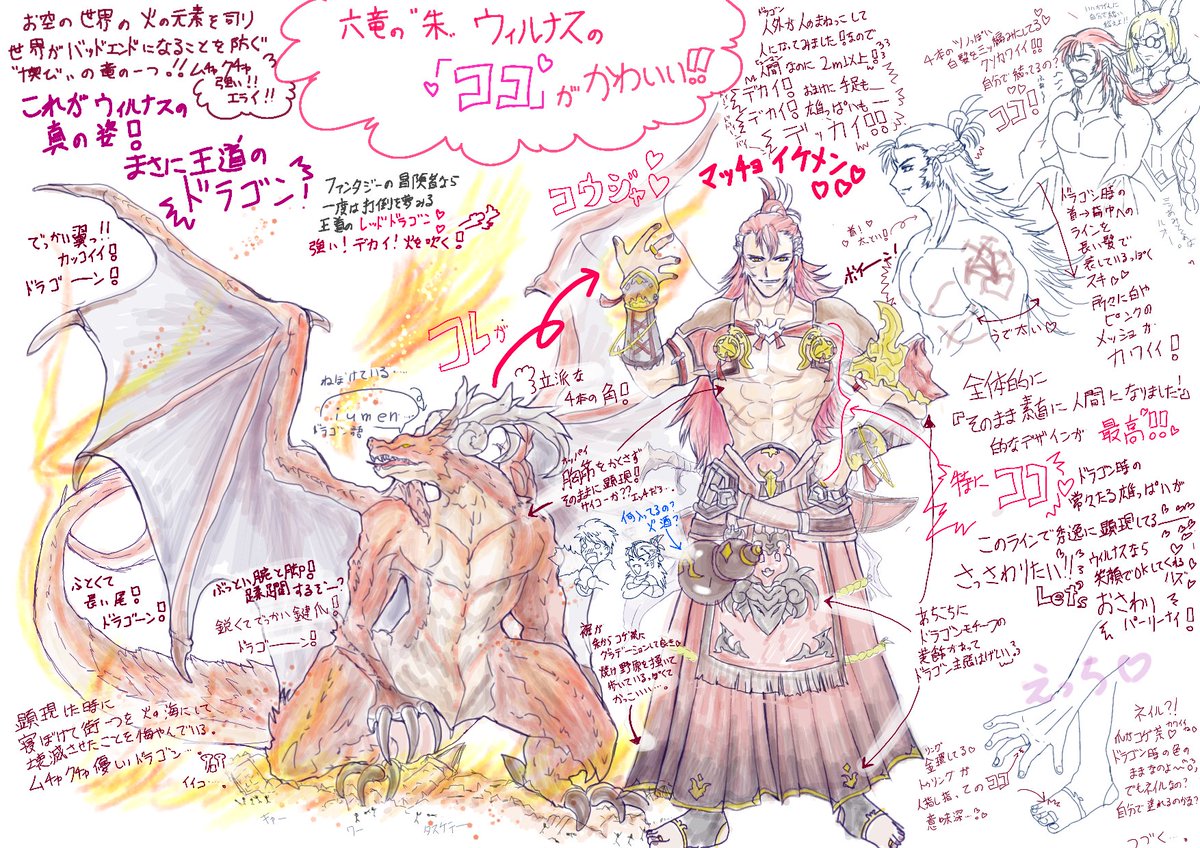 お空の世界の火の元素を司り
世界がバッドエンドになることを防ぐ
の竜の一つ!!ムチャクチャ
強い!!
エライ!!
これがウィルナスの
真の姿!
まさに王道の
ドラゴン!
六竜の"朱"ウィルナスの
「ココ」がかわいい!!
ドラゴン
人外が人のまねっこして
人になってみました!なので
人間なのに2m以上!
デカイ!おまけに手足も
デカイ!雄っぱいも
デッカイ!!
マッチョイケメン
4本のツノっぽい
白髪を三ツ編みにしてる
クソカワイイ!
自分で結ってるの?
ココ!
ファンタジーの冒険者なら
一度は打倒を夢みる
王道のレッドドラゴン
強い!デカイ!火を吹く!
コウジャ
コレが
でっかい翼っ!!
カッコイイ!
ドラゴーーン!
ねぼけている…
iumen
ドラゴン語
立派な
4本の角!
胸筋をかくさず
そのままに顕現!
サイコーか??
何入ってるの?
火酒?
首!
太てい!
ボイーン!
うで太い
ドラゴン時の
首→背中への
ラインを
長い髪で
表しているっぽく
スキ
所々に白や
ピンクの
メッシュが
カワイイ!
全体的に
『そのまま素直に人間になりました!』
的なデザインが最高!!
特にココ
ドラゴン時の
常々たる雄っぱいが
このラインで秀逸に顕現してる
さっさわりたい!!ウィルナスなら
笑顔でOKしてくれるハズ
Let's おさわり
パーリーナイ!
あちこちに
ドラゴンモチーフの
装飾があって
ドラゴン主張はげしい
ふとくて
長い尾!
ドラゴーン!
ぶっとい腕と脚!
蹂躙するぞーっ
鋭くてでっかい鍵爪!
ドラゴーーン!
裾が
朱からコゲ茶に
グラデーションしてるのも
焼け野原を描いて
歩いている
かっこいい…
顕現した時に
寝ぼけて街一つを火の海にして
壊滅させたことを悔やんでいる。
ムチャクチャ優しいドラゴン…
イイコ…
キャー
ワー
タスケテー
えっち
リング
金環してる
トゥリングが
人差し指っての
ココ
意味深…
ネイル?!
コゲ茶
ドラゴン時の色の
ままなのよ〜
でもネイルなの?
自分で塗れるのかな?
つづく…。